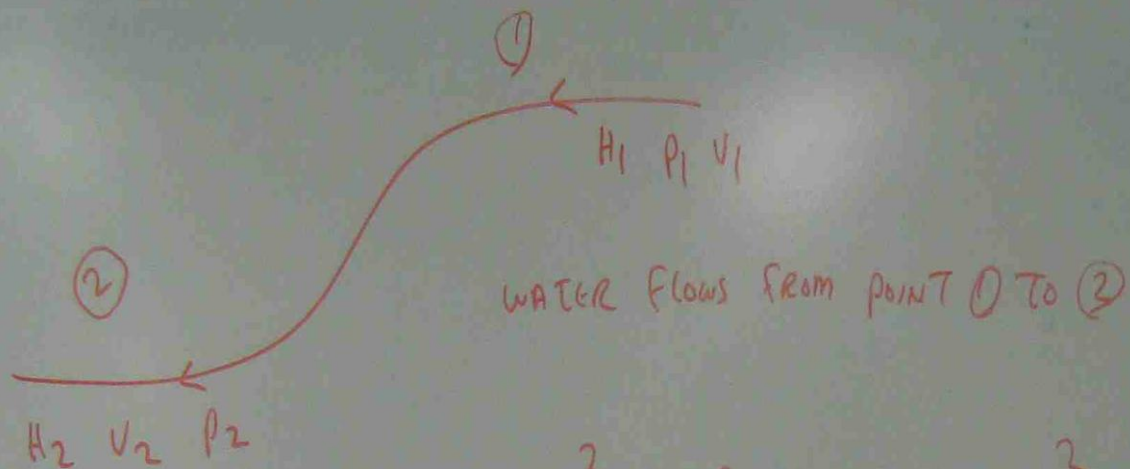 ①
H1 P1 V1
②
WATER FLOWS FROM POINT ① TO ②
H2 V2 P2
2 2